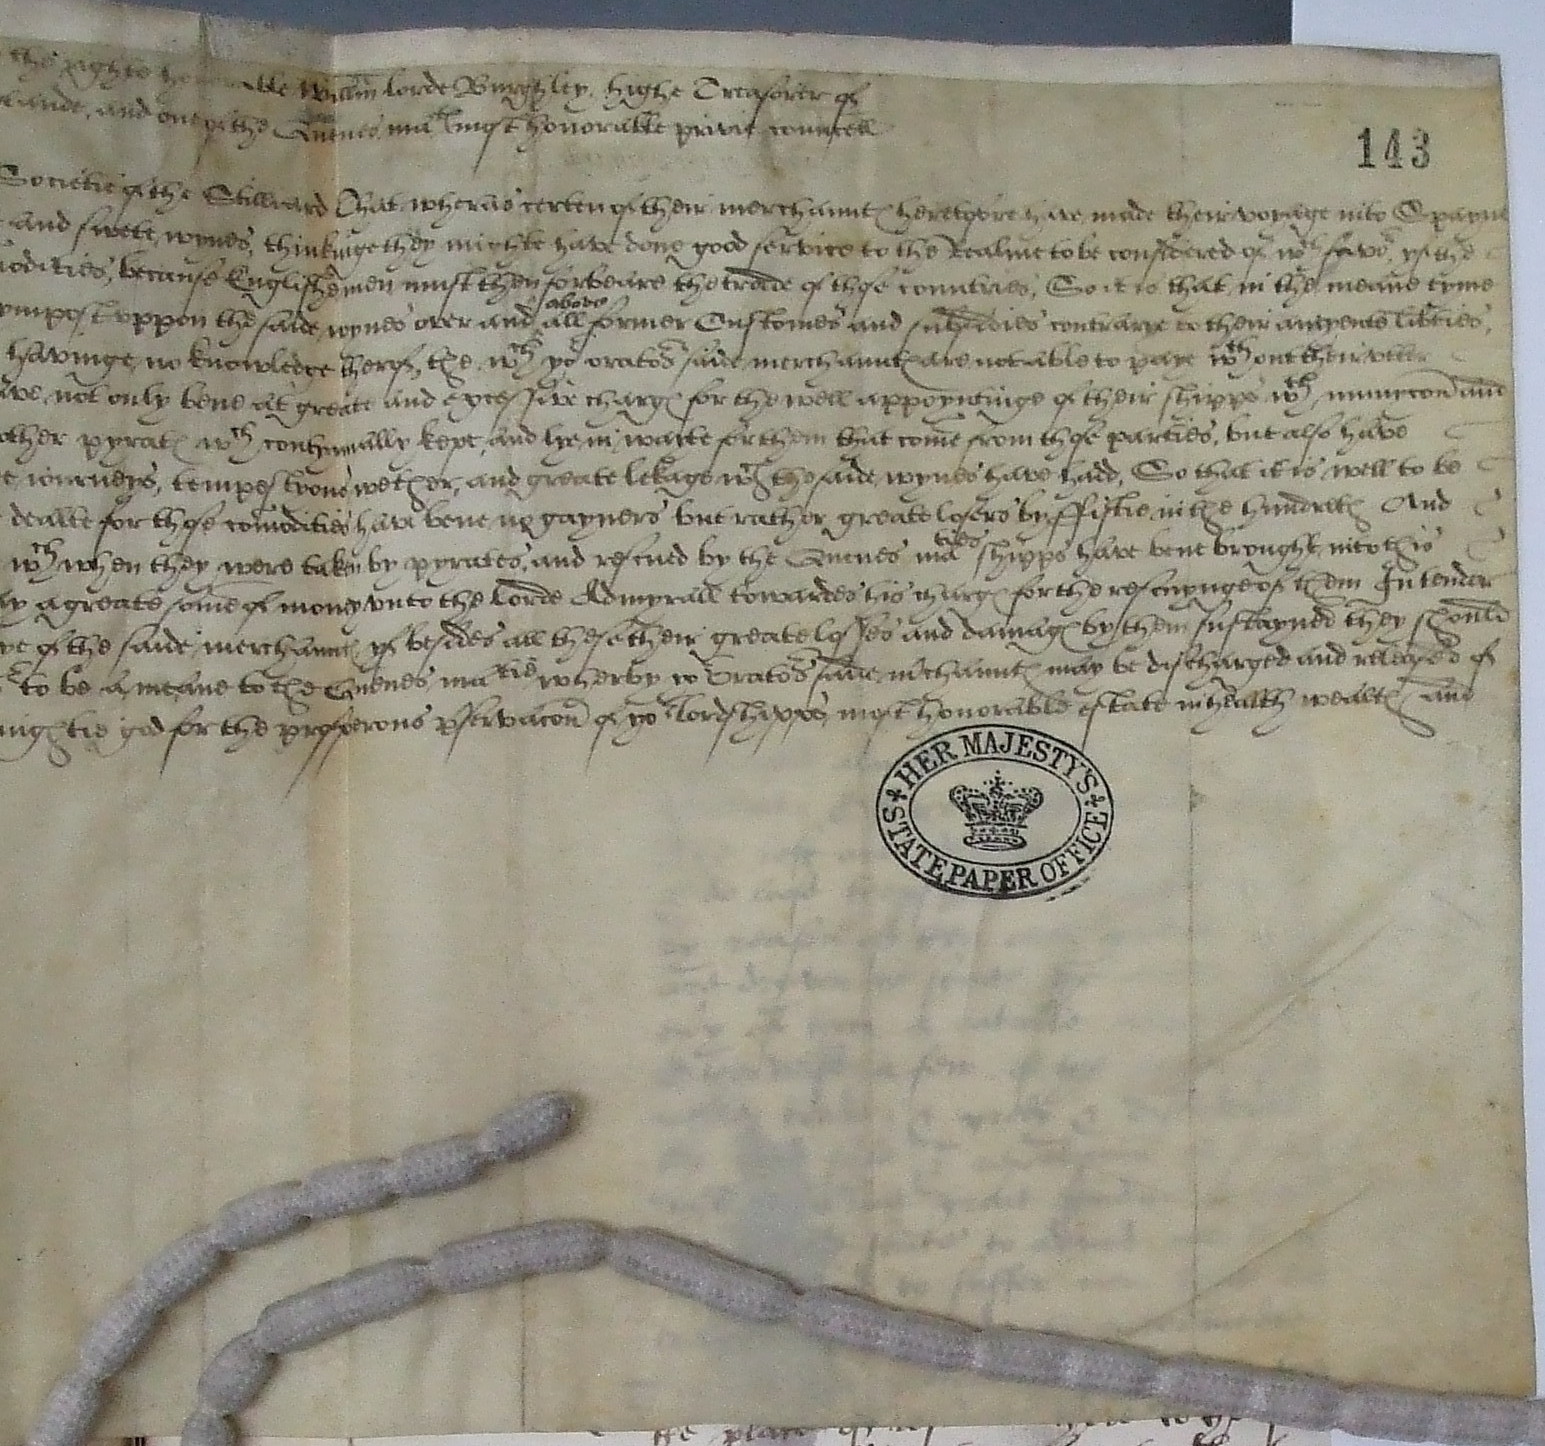 the righte honorable Willm lorde Burghley, highe Treasorer of
lande, and one of the Quenes ma^ts most honorable privie councell
143
Societie of the Stilliard That wheras certen of their merchaunts heretofore have made their voyage into Spayne
and swete wynes, thinkinge they mighte have done good service to the Realme to be considered of w^th favo^r, yf the
modities, because Englishemen must then forbeare the trade of those countries, So it is that in the meane tyme
ympost uppon the saide wynes over and above all former Customes and subsidies contrarye to their auncyente liberties,
havinge no knowledge therof, the w^ch yo^r orato^rs saide merchaunts are not able to paye w^thout their utter
have not only bene at greate and excessive charges for the well appoyntinge of their shipps w^th municon and
other pyrats w^ch contynually kept, and lye in waite for them that come from those parties, but also have
journeys, tempestyous wether, and greate lekage w^ch the saide wynes have hadd, So that it is well to be
dealte for those comodities have bene no gayners but rather greate losers by fiftie in the hundreth And
w^ch when they were taken by pyrates, and rescued by the Quenes ma^ties shipps have bene brought into this
a greate some of money unto the Lorde Admyrall towardes his charges for the rescuynge of them In tender
of the saide merchaunts yf besides all these their greate losses and damages by them sustayned they should
to be a meane to the Quenes ma^tie wherby yo^r Orato^rs saide m'chaunts may be discharged and released of
mightie god for the prosperous p'servacon of yo^r lordshipps most honorable estate in health wealth and
HER MAJESTY'S
STATE PAPER OFFICE